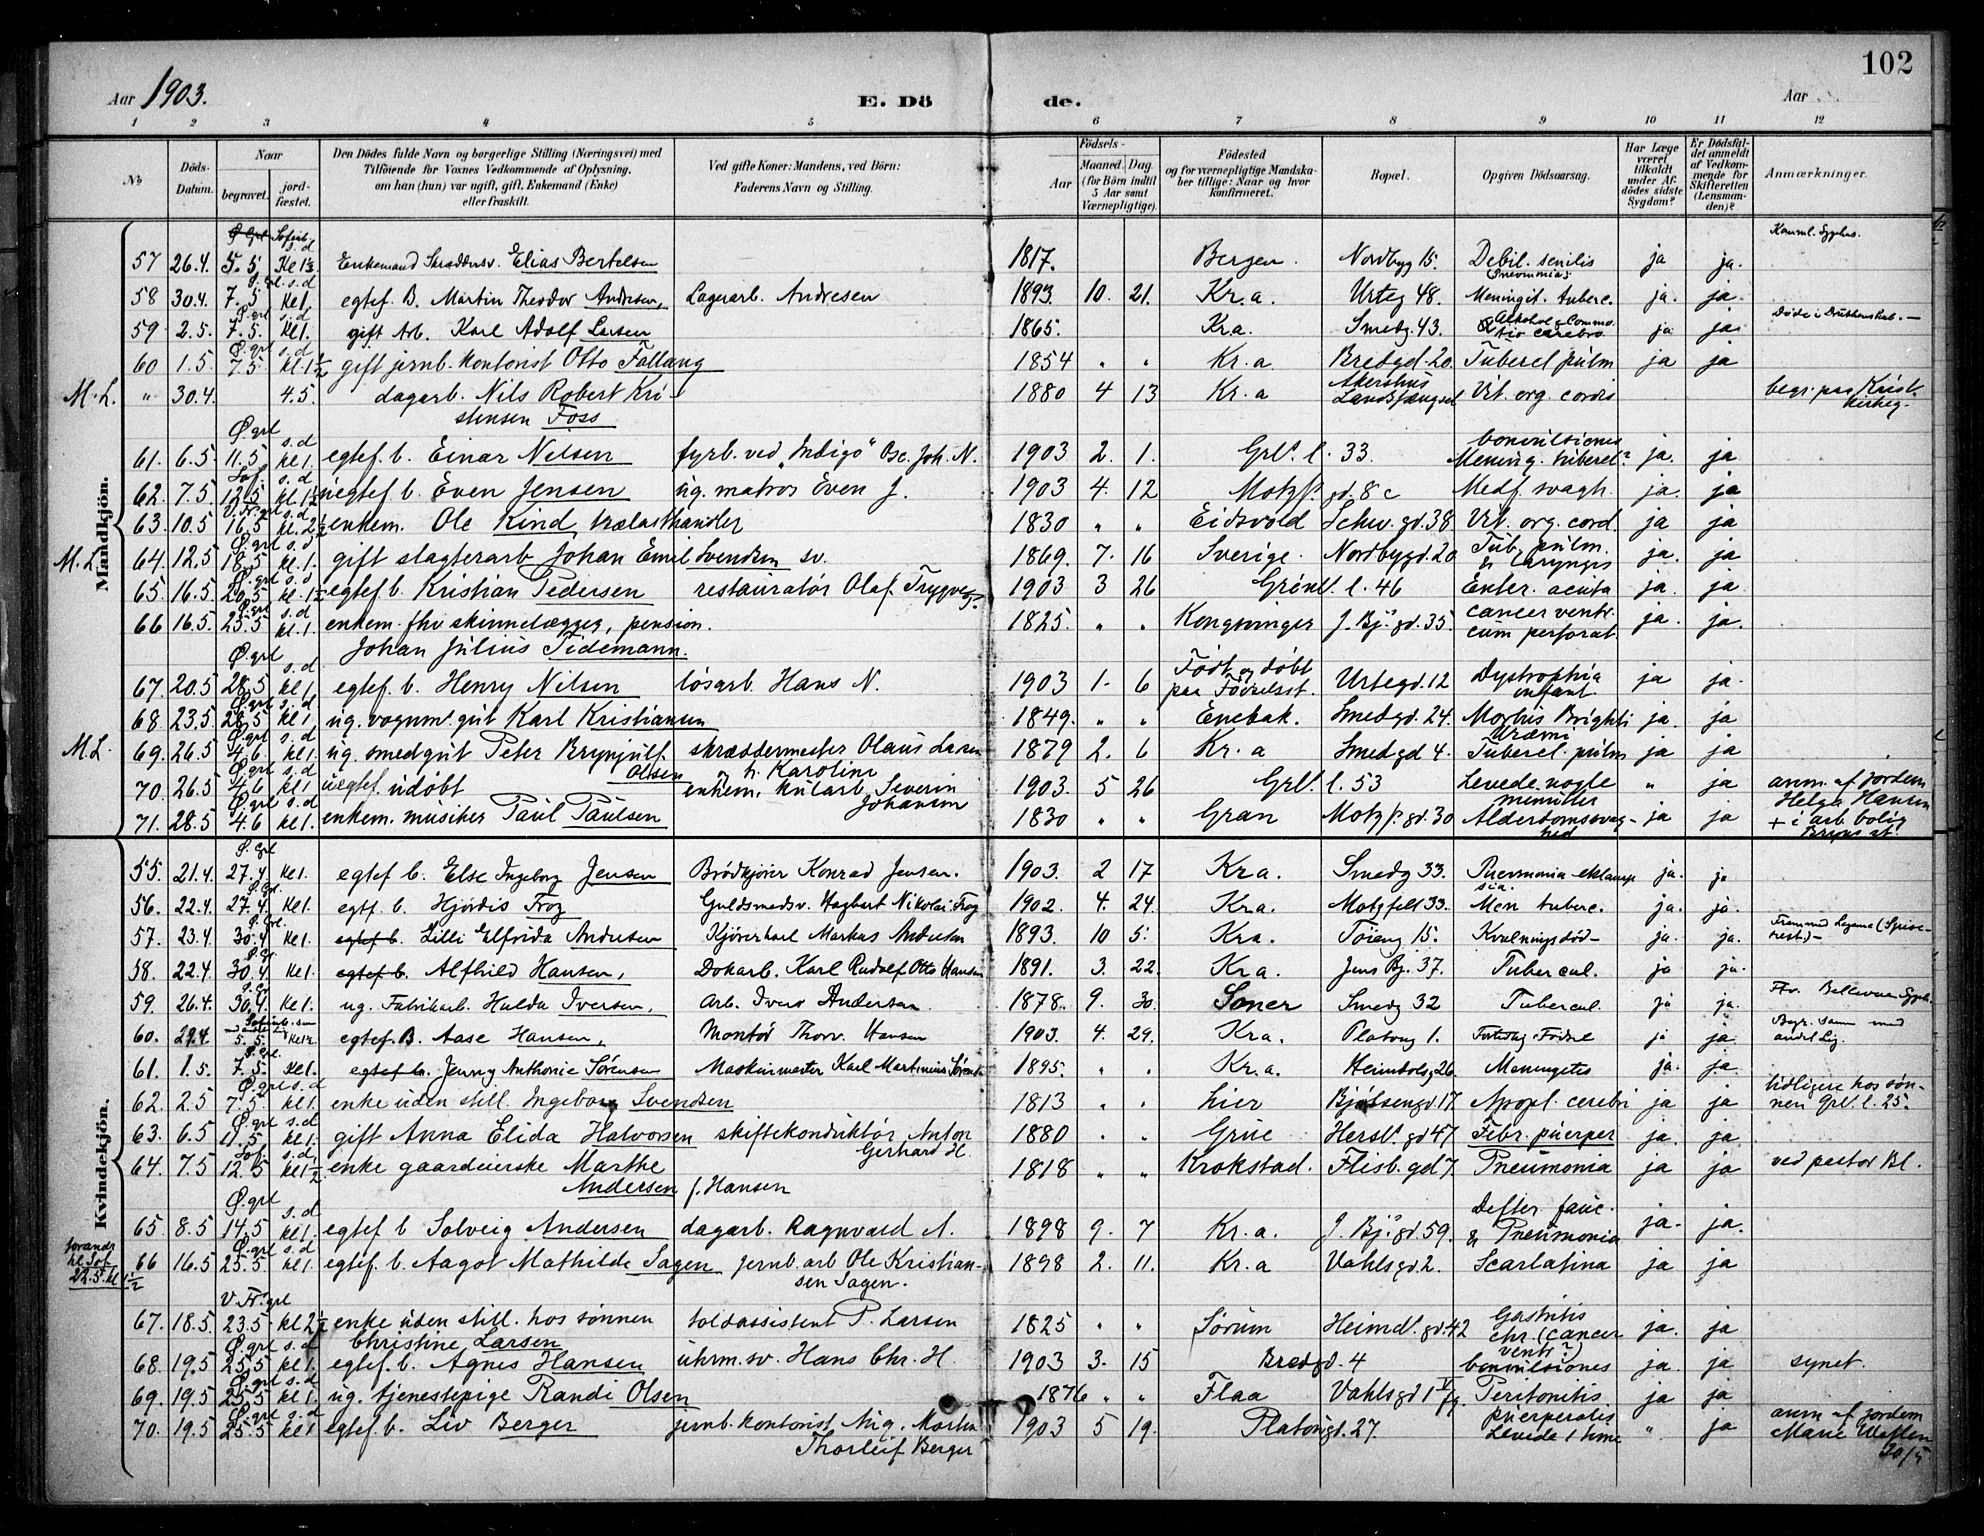 102
Aar 1903. E. Dö de. Aar
1 2 3 4 5 6 7 8 9 10 11 12
No Döds-Datum. Naar begravet. jord-fæstet. Den Dödes fulde Navn og borgerlige Stilling (Næringsvei) med Tilföiende for Voxnes Vedkommende af Oplysning, om han (hun) var ugift, gift, Enkemand (Enke) eller fraskilt. Ved gifte Koner: Mandens, ved Børn: Faderens Navn og Stilling. Födsels- Aar Maaned. Dag. (for Börn indtil 5 Aar samt Værnepligtige). Födested og for værnepligtige Mandskaber tillige: Naar og hvor konfirmeret. Bopæl. Opgiven Dödsaarsag. Har Læge været tilkaldt under Afdödes sidste Sygdom? Er Dødsfaldet anmeldt af Vedkommende for Skifteretten (Lensmanden)? Anmærkninger.
Mandkjön.
57 26.4. 5.5. Kl 1½ Enkemand Skræddersv. Elias Bertelsen 1817. Bergen. Nordbyg 15. Debil. senilis ja ja. Komml. Sygehus.
58 30.4. 7.5 Kl 1. egtef. B. Martin Theodor Andresen, Lagerarb. Andresen 1893. 10. 21. Kr.a. Urteg 48. (Pneumonia) Meningit. tuberc. ja. ja.
59 2.5. 7.5 Kl 1. gift Arb. Karl Adolf Larsen 1865. Kr.a. Smedg. 43. Alkohol & Commotio cerebri ja ja. Døde i Drukkenskab.
60 1.5. 7.5 kl. 1½ gift jernb. kontorist Otto Fallang 1854 " " Kr.a. Bredgd. 20. Tubercl pulm ja ja
M.L. " 30.4. 4.5. dagarb. Nils Robert Kristensen Foss 1880 4 13 Kr.a Akershus Landsfængsel Vit. org. cordis begr. paa Krist. kirkeg.
61. 6.5 11.5 kl 1. egtef. b. Einar Nelsen fyrb. ved "Indigo" Osc. Joh. N. 1903 2. 1. Grl. l. 33. Convulsiones Mening. tubercl? ja. ja
62. 7.5 12.5 kl 1½ uegtef. b. Even Jensen ug. matros Even J. 1903 4. 12 Motzf. gd. 8c Medf. svagh. ja. ja
63. 10.5 16.5 kl. 2½ enkem. Ole Kind, trælasthandler 1830 " " Eidsvold Schw. gd. 38 Vit. org. cord. ja ja
M.L. 64. 12.5 18.5 kl 1. gift slagterarb Johan Emil Svendsen sv. 1869. 7. 16 Sverige. Nordbygd. 20 Tub. pulm. & laryngis ja. ja
65. 16.5. 20.5 kl. 1½ egtef. b. Kristian Pedersen restauratør Olaf Trygve P. 1903 3 26 Grönl. l. 46 Enter. acuta ja. ja
66 16.5. 25.5 kl 1. enkem. fhv skinnelægger, pension. Johan Julius Tidemann. 1825. " " Kongsvinger J. Bj. gd. 35. Cancer ventr. cum perforat. ja. ja.
67. 20.5 28.5 kl 1. egtef. b. Henry Nilsen løsarb. Hans N. 1903 1. 6 Født og døbt paa Födselsst. Urtegd. 12 Dystrophia infant. ja ja.
68. 23.5 28.5 kl 1. ug. vognm. gut Karl Kristiansen 1849. " " Enebak. Smedgd. 24. Morbus Brighti Uræmi ja. ja
M.L. 69. 26.5 4.6 kl 1. ug. smedgut Peter Brynjulf Olsen skræddermester Olaus Larsen og h. Karoline 1879 2. 6 Kr.a Smedgd 4. Tubercl. pulm ja ja
70. 26.5 4.6 kl 1 uegtef. udøbt enkem. kularb. Severin Johansen 1903. 5 26 Grl. l. 53 Levede nogle minutter " ja anm. af jordem Helga Hansen
71. 28.5 4.6 kl 1. enkem. musiker Paul Paulsen 1830 " " Gran Motzf. gd. 30 Alderdomssvaghed ja ja + i arb. bolig
Kvindekjön.
55. 21.4. 27.4. Kl 1. egtef b. Else Ingeborg Jensen Brödkjører Konrad Jensen. 1903. 2 17 Kra. Smedg 33. Pneumonia eklampsia. ja. ja
56. 22.4. 27.4. Kl 1. egtf. b. Hjørdis Froz Guldsmedsv. Hagbart Nikolai Froz 1902. 4. 24. Kra. Motzfeld 33. Men tuberc. ja. ja.
57. 23.4. 30.4 Kl 1. egtef b. Lilli Elfrida Andersen Kjörerkarl Markus Andersen 1893. 10 5. Kra. Töieng 15. Kvælningsdöd ja. ja. Fremmed Legeme (Spiserest.)
58. 22.4. 30.4. Kl 1. egtef b. Alfhild Hansen, Dokarb. Karl Rudolf Otto Hansen 1891. 3. 22. Kr.a. Jens Bj. 37. Tubercul. ja ja.
59. 26.4. 30.4. Kl 1. ug. Fabrikarb. Hulda Iversen, Arb. Iver Andersen 1878. 9. 30. Soner Smedg 32 Tubercul. ja ja. Fhv. Bellevue Sygeh.
60. 29.4. 5.5. Kl 1½ egtef. B. Aase Hansen, Montör Thorv. Hansen 1903. 4. 29. Kra. Platong 1. Fortidlig Födsel ja ja. Begr. sam. med andet Lig.
61. 1.5. 7.5. Kl 1. egtef b. Jenny Anthonie Sørensen Maskinmester Karl Martinius Sørensen 1895. " " Kr.a. Heimdalsg 26. Meningitis ja. ja.
62. 2.5 7.5. kl 1. enke uden still. Ingeborg Svendsen 1813 " " Lier Bjölsengd 17. Apopl. cerebri ja ja tidligere hos sønnen Grl. l. 25.
63. 6.5 11.5 kl 1. gift Anna Elida Halvorsen skiftekonduktør Anton Gerhard H. 1880 " " Grue Hersl. gd 47. Febr. puerper ja. ja.
64. 7.5 12.5 kl 1½ enke gaardeierske Marthe Andersen f. Hansen 1818 " " Krokstad. Flisb. gd 7. Pneumonia ja ja ved pastor Bl.
65. 8.5 14.5 kl 1. egtef b Solveig Andersen dagarb. Ragnvald A. 1898 9. 7 Kr.a. J. Bj. gd. 59. Difter. fauc. & Pneumonia ja. ja.
jordf. kl Sof. 22.5. kl 1½ 66 16.5 25.5 kl 1. egtef. b. Aagot Mathilde Sagen jernb. arb Ole Kristiansen Sagen. 1898 2. 11. Kr.a Vahlsgd. 2. Scarlatina ja ja
67. 18.5. 23.5 kl 2½ enke uden still. hos sønnen Christine Larsen toldassistent P. Larsen 1825 " " Sørum Heimdl. gd. 42 Gastritis chr. (cancer ventr?) ja. ja
68. 19.5 25.5 kl 1. egtef. b. Agnes Hansen uhrm. sv. Hans Chr. H. 1903 3. 15 Bredgd. 4 Convulsiones ja. ja synet.
69. 19.5 25.5 kl 1. ug. tjenestepige Randi Olsen 1876 " " Flaa Vahlsgd 1 Peritonitis puerperalis ja ja
70. 19.5 25.5 kl 1 egtef. b. Liv Berger jernb. kontorist Aug. Martin Thorleif Berger 1903 5 19. Platoùgd. 27. Levede 1 time " ja anm af jordem Marie 20/5